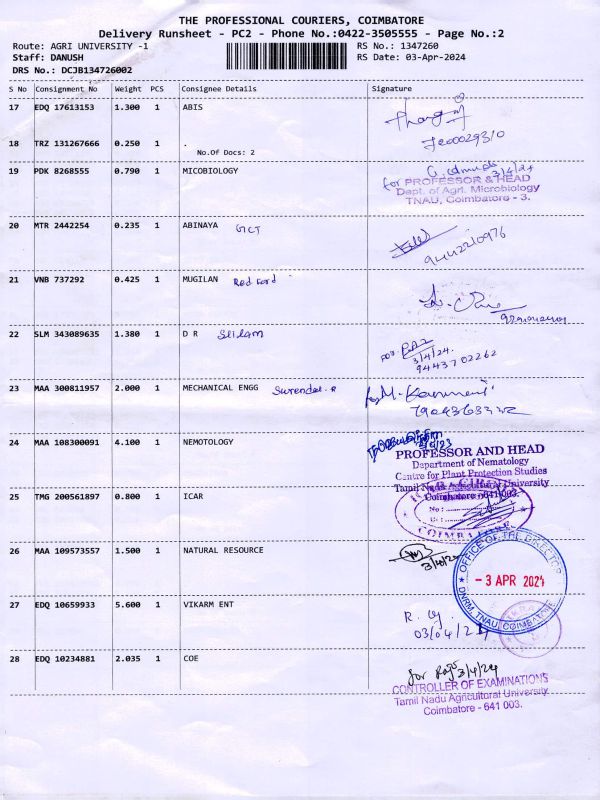 THE PROFESSIONAL COURIERS, COIMBATORE
Delivery Runsheet - PC2 - Phone No.:0422-3505555 - Page No.:2
Route: AGRI UNIVERSITY -1 RS No.: 1347260
Staff: DANUSH RS Date: 03-Apr-2024
DRS No.: DCJB134726002
S No Consignment No Weight PCS Consignee Details Signature
17 EDQ 17613153 1.300 1 ABIS
18 TRZ 131267666 0.250 1 .
No.Of Docs: 2
19 PDK 8268555 0.790 1 MICOBIOLOGY 3/4/24
for PROFESSOR & HEAD
Dept. of Agri. Microbiology
TNAU, Coimbatore - 3.
20 MTR 2442254 0.235 1 ABINAYA GCT
9442210976
21 VNB 737292 0.425 1 MUGILAN Red Ford
22 SLM 343089635 1.380 1 D R
3/4/24.
9443702262
23 MAA 300811957 2.000 1 MECHANICAL ENGG Surendar.R
24 MAA 108300091 4.100 1 NEMOTOLOGY
PROFESSOR AND HEAD
Department of Nematology
Centre for Plant Protection Studies
Tamil Nadu Agricultural University
Coimbatore - 641 003.
25 TMG 200561897 0.800 1 ICAR
No :
COIMBATORE
26 MAA 109573557 1.500 1 NATURAL RESOURCE
3/4/24
OFFICE OF THE DIRECTOR
- 3 APR 2024
DNRM, TNAU, COIMBATORE
27 EDQ 10659933 5.600 1 VIKARM ENT
03/04/24
28 EDQ 10234881 2.035 1 COE
for 3/4/24
CONTROLLER OF EXAMINATIONS
Tamil Nadu Agricultural University
Coimbatore - 641 003.